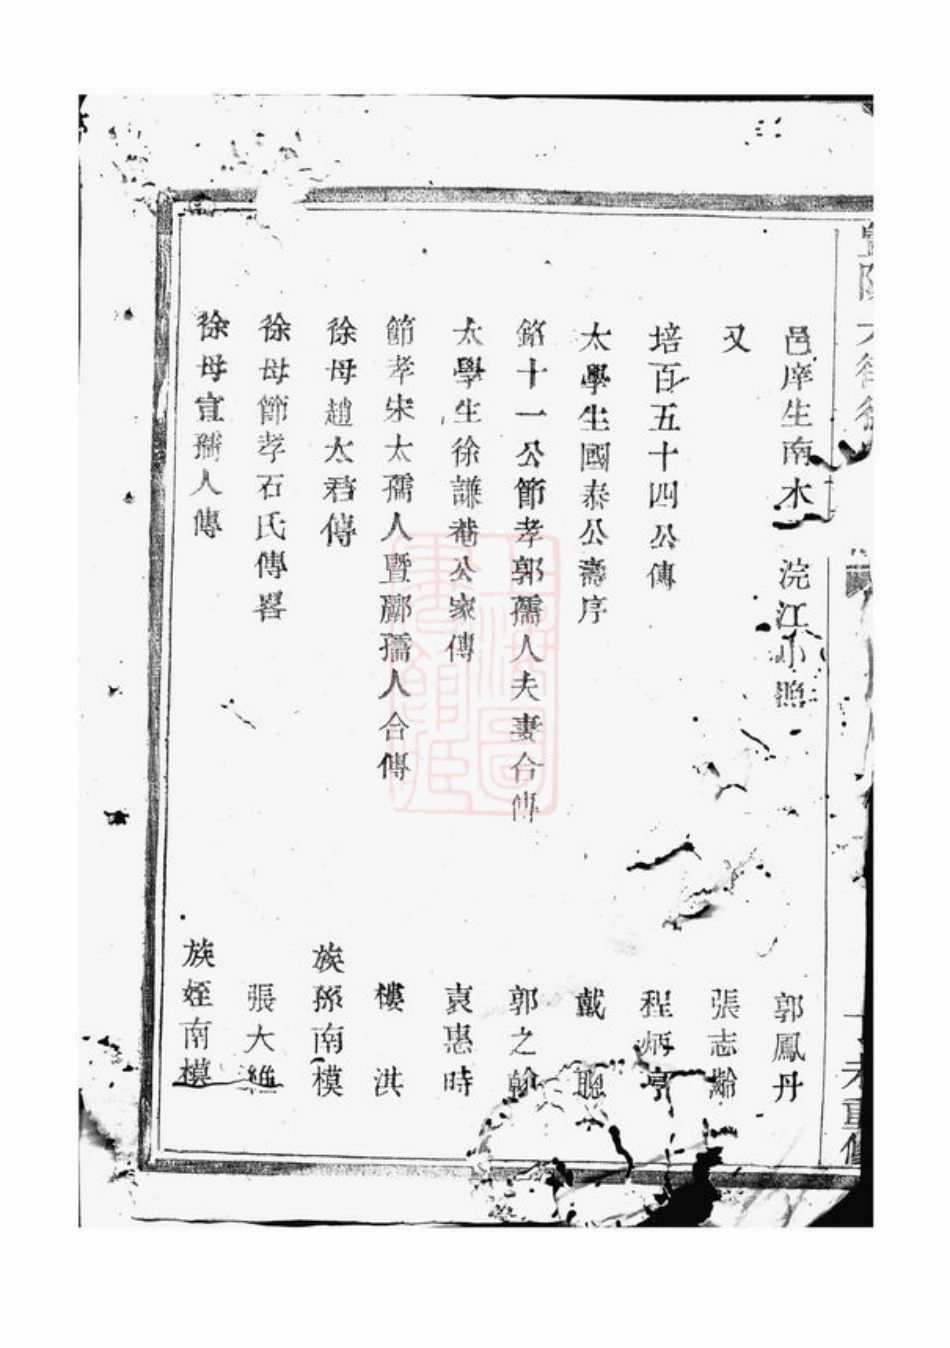 邑庠生南木 浣江小照 郭鳳丹
又 張志齡
培百五十四公傳 程炳亨
太學生國泰公壽序 戴聰
銘十一公節孝郭孺人夫妻合傳 郭之翰
太學生徐謙菴公家傳 袁惠時
節孝宋太孺人暨酈孺人合傳 樓淇
徐母趙太君傳 族孫南模
徐母節孝石氏傳畧 張大維
徐母宣孺人傳 族姪南模